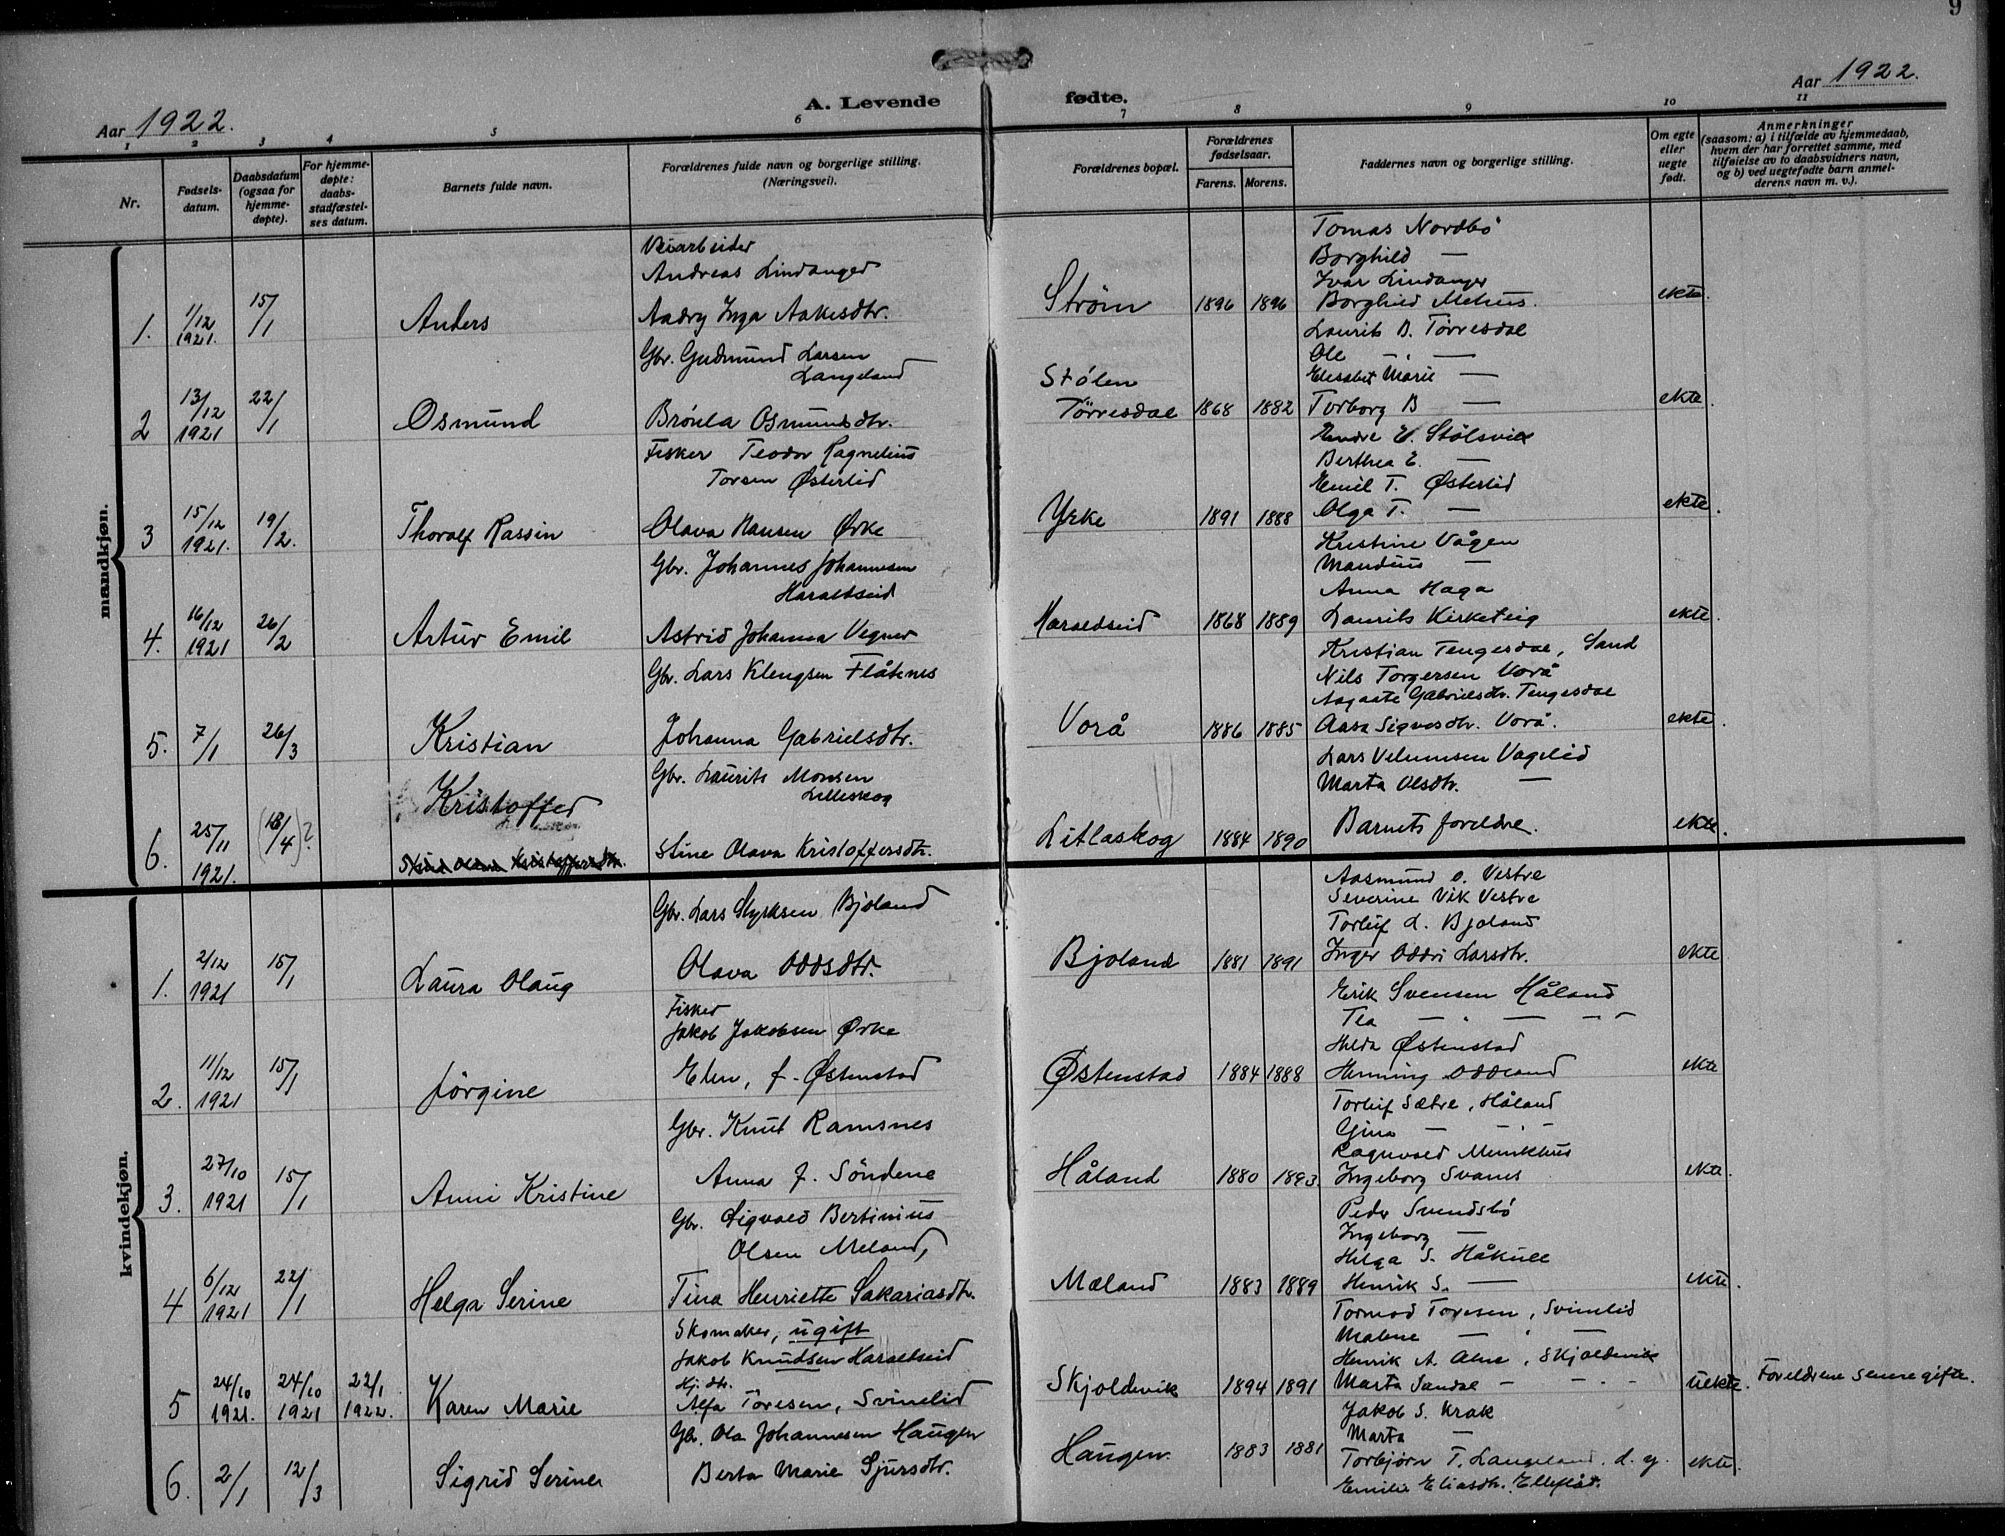 9
Aar 1922.
A. Levende fødte.
Aar 1922.
1 2 3 4 5 6 7 8 9 10 11
Nr.
Fødsels-
datum.
Daabsdatum
(ogsaa for
hjemme-
døpte).
For hjemme-
døpte:
daabs-
stadfæstel-
ses datum.
Barnets fulde navn.
Forældrenes fulde navn og borgerlige stilling.
(Næringsvei).
Forældrenes bopæl.
Forældrenes
fødselsaar.
Farens. Morens.
Faddernes navn og borgerlige stilling.
Om egte
eller
uegte
født.
Anmerkninger
(saasom: a) i tilfælde av hjemmedaab,
hvem der har forrettet samme, med
tilføielse av to daabsvidners navn,
og b) ved uegtefødte barn anmel-
derens navn m. v.).
mandkjøn.
1. 1/12 1921. 15/1 Anders
Veiarbeider
Andreas Lindanger
Aadry Inga Aakesdtr.
Strøm 1896 1896
Tomas Nordbö
Borghild —
Ivar Lindanger
Borghild Mehus.
ekte.
2 13/12 1921 22/1 Osmund
Gbr. Gudmund Larsen
Langeland
Bröula Osmundsdtr.
Stølen
Törresdal 1868 1882
Laurits B. Törresdal
Ole — " —
Elisabet Marie —
Torborg B —
ekte.
3 15/12 1921. 19/2. Thoralf Rassin
Fisker Teodor Ragnelius
Torsen Østerlid
Olava Hansen Ørke
Yrke 1891 1888
Endre E. Stølsvik
Berthea E. —
Emil T. Østerlid
Olga T. —
ekte.
4. 16/12 1921 26/2 Artur Emil
Gbr. Johannes Johannesen
Haraldseid
Astrid Johanna Vegner
Haraldseid 1868 1889
Kristine Vågen
Mandius —
Anna Haga
Laurits Kirketeig
ekte.
5. 7/1 26/3 Kristian
Gbr. Lars Klengsen Flåtnes
Johanna Gabrielsdtr.
Vorå 1886 1885
Kristian Tengesdal, Sand
Nils Torgersen Vorå
Aagaate Gabrielsdtr. Tengesdal
Aasa Sigvesdtr. Vorå.
ekte.
6. 25/11 1921. (18/4)? Kristoffer
Gbr. Laurits Monsen
Lilleskog
Stine Olava Kristoffersdtr.
Litlaskog 1884 1890
Lars Velumsen Vaglid
Marta Olsdtr. —
Barnets foreldre.
ekte.
kvindekjøn.
1. 2/12 1921 15/1 Laura Olaug
Gbr. Lars Styrksen Bjoland
Olava Oddsdtr.
Bjoland 1881 1891
Aasmund O. Vestre
Severine Vik Vestre
Torleif L. Bjoland
Inger Oddri Larsdtr.
ekte
2. 11/12 1921 15/1 Jörgine
Fisker
Jakob Jakobsen Ørke
Elen, f. Østenstad
Østenstad 1884 1888
Erik Svensen Håland
Tea — " — " —
Hilda Østenstad
Henning Oddland
ekte
3. 27/10 1921 15/1 Anni Kristine
Gbr. Knut Ramsnes
Anna f. Söndenå
Håland 1880 1893.
Torleif Sætre, Håland
Gina — " —
Ragnvald Munkhus
Ingeborg Svanes
ekte.
4 6/12 1921 22/1 Helga Serine
Gbr. Sigvald Bertinius
Olsen Meland,
Tina Henriette Sakariasdtr.
Mæland 1883 1889
Peder Svendsbö
Ingeborg —
Helga S. Håkull
Henrik S. —
ekte.
5 24/10 1921. 24/10 1921 22/1 1922. Karen Marie
Skomaker, ugift
Jakob Knudsen Haraldseid
Hj. dtr.
Alfa Toresen, Svinelid
Skjoldevik 1894 1891
Tormod Toresen, Svinelid
Malene — " —
Henrik A. Alne, Skjoldevik
Marta Sandal — " —
uekte. Foreldrene senere gifte.
6. 2/1 12/3 Sigrid Serine
Gbr. Ola Johannesen Haugen
Berta Marie Sjursdtr.
Haugen. 1883 1881
Jakob S. Krak
Marta —
Torbjørn T. Langeland. d. y.
Emilie Eliasdtr. Elleflåt.
ekte.